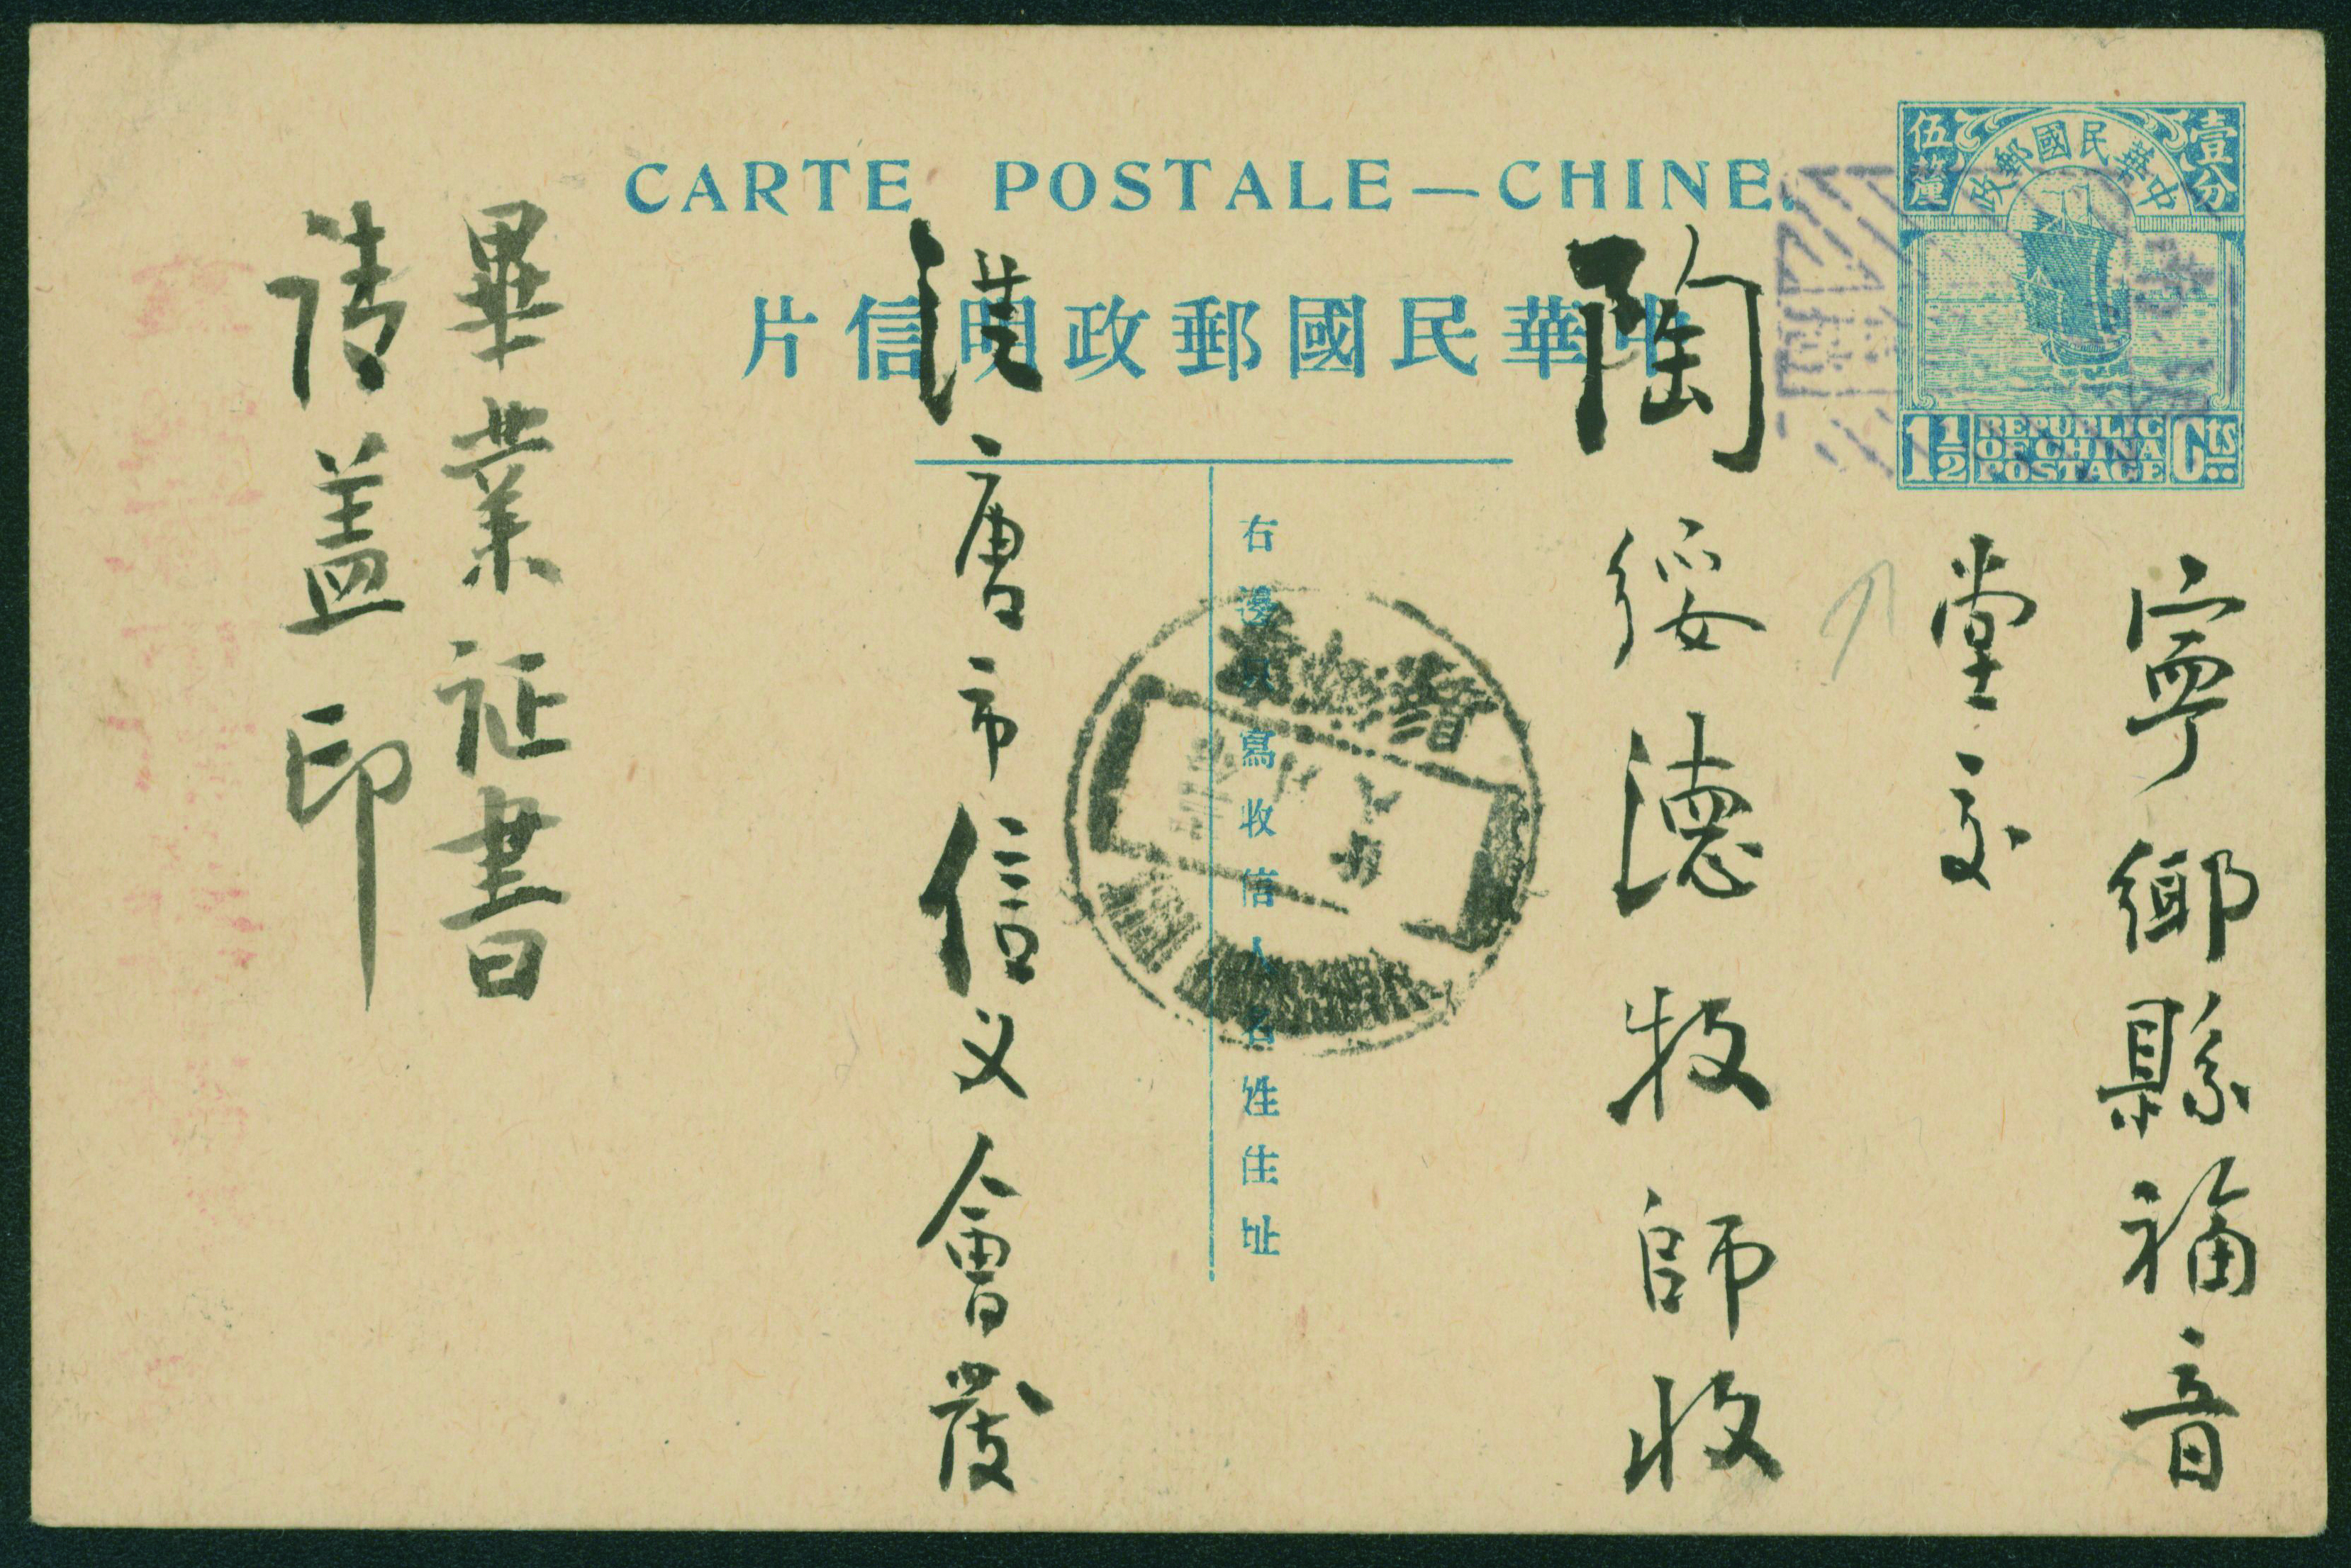 CARTE POSTALE—CHINE.
中華民國郵政明信片
中華民國郵政
壹分
伍厘
1½ REPUBLIC OF CHINA POSTAGE Cts
寧鄉縣福音
堂交
陶綏德牧師收
右邊只寫收信人名姓住址
唐市信义會發
畢業证書
请盖印